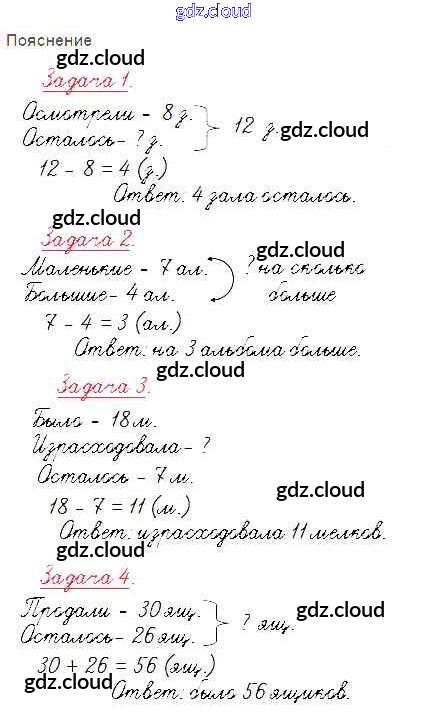 gdz.cloud
Пояснение
gdz.cloud
Задача 1.
gdz.cloud
Осмотрели - 8 з.
Осталось - ? з.
12 з.
gdz.cloud
12 - 8 = 4 (з.)
Ответ: 4 зала осталось.
gdz.cloud
Задача 2.
gdz.cloud
Маленькие - 7 ал.
Большие - 4 ал.
? на сколько
больше
7 - 4 = 3 (ал.)
gdz.cloud
Ответ: на 3 альбома больше.
gdz.cloud
Задача 3.
Было - 18 м.
Израсходовала - ?
Осталось - 7 м.
gdz.cloud
18 - 7 = 11 (м.)
Ответ: израсходовала 11 мелков.
gdz.cloud
Задача 4.
gdz.cloud
Продали - 30 ящ.
Осталось - 26 ящ.
? ящ.
gdz.cloud
30 + 26 = 56 (ящ.)
gdz.cloud
Ответ: было 56 ящиков.
gdz.cloud